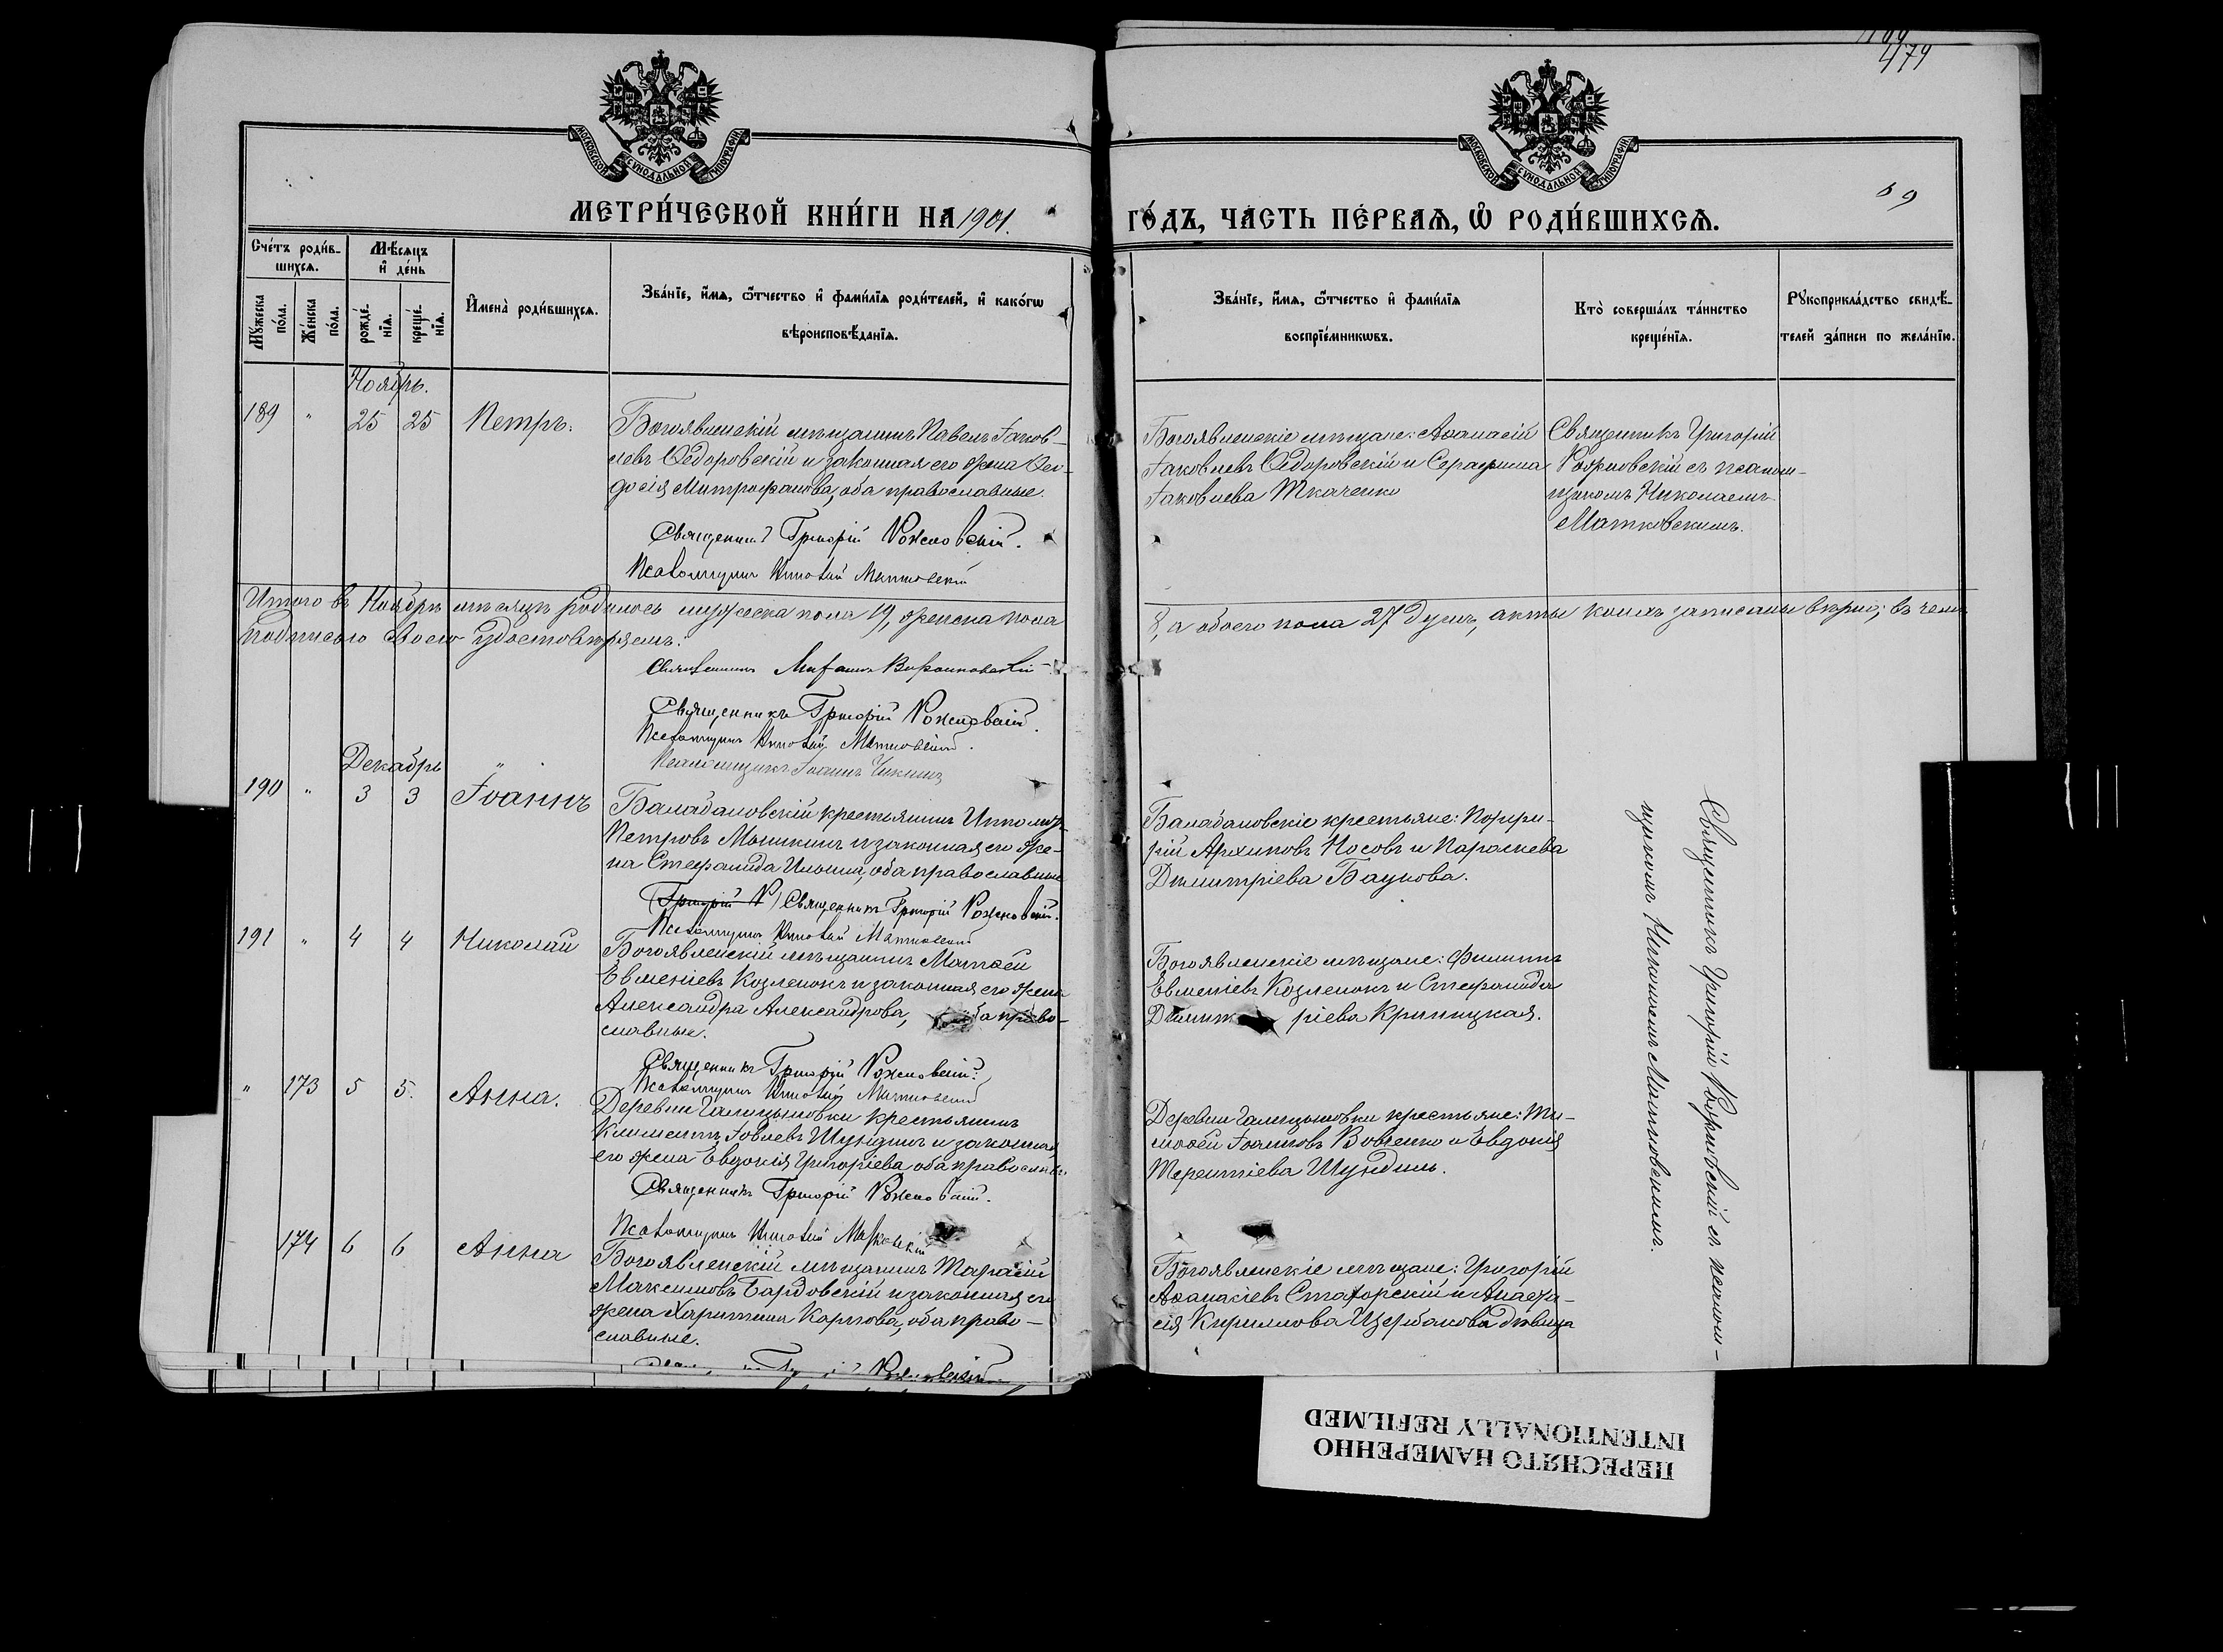 479
МОСКОВСКОЙ СѴНОДАЛЬНОЙ ТИПОГРАФІИ
МОСКОВСКОЙ СѴНОДАЛЬНОЙ ТИПОГРАФІИ
69
МЕТРИ́ЧЕСКОЙ КНИ́ГИ НА 1901.
ГО́ДЪ, ЧА́СТЬ ПЕ́РВАѦ, Ѽ РОДИ́ВШИХСѦ.
Сче́тъ роди́в-
шихсѧ.
Мѣ́сѧцъ
и҆ де́нь
Мꙋ́жеска по́ла.
Же́нска по́ла.
рожде́-
нїѧ.
креще́-
нїѧ.
И҆мена̀ роди́вшихсѧ.
Зва́нїе, и҆́мѧ, ѻ҆́тчество и҆ фами́лїѧ роди́телей, и҆ како́гѡ
вѣроисповѣ́данїѧ.
Зва́нїе, и҆́мѧ, ѻ҆́тчество и҆ фами́лїѧ
воспрїе́мникѡвъ.
Кто̀ соверша́лъ та́инство
креще́нїѧ.
Рꙋкоприкла́дство свидѣ́-
телей за́писи по жела́нїю.
Ноябрь.
189 " 25 25 Петръ.
Богоявленскій мѣщанинъ Павелъ Іаков-
левъ Ѳедоровскій и законная его жена Ѳео-
досія Митрофанова, оба православные.
Священникъ Григорій Рожновскій.
Псаломщикъ Николай Матковскій
Богоявленскіе мѣщане: Аѳанасій
Іаковлевъ Ѳедоровскій и Серафима
Іаковлева Ткаченко
Священникъ Григорій
Рожновскій съ псалом-
щикомъ Николаемъ
Матковскимъ.
Итого въ Ноябрѣ мѣсяцѣ родилось мужеска пола 19, женска пола
8, а обоего пола 27 душъ, акты коихъ записаны вѣрно; въ чемъ
подписью своею удостовѣряемъ:
Священникъ
Священникъ Григорій Рожновскій.
Псаломщикъ Николай Матковскій.
Псаломщикъ Іоаннъ
Декабрь
190 " 3 3 Іоаннъ
Балабановскій крестьянинъ
Петровъ Мышкинъ и законная его же-
на Стефанида Ильина, оба православные
(Григорій Р) Священникъ Григорій Рожновскій.
Псаломщикъ Николай Матковскій
Балабановскіе крестьяне: Порфи-
рій Архиповъ Носовъ и Параскева
Димитріева Баукова.
191 " 4 4 Николай
Богоявленскій мѣщанинъ Матѳей
Евменіевъ Козленокъ и законная его жена
Александра Александрова, оба право-
славные.
Священникъ Григорій Рожновскій.
Псаломщикъ Николай Матковскій
Богоявленскіе мѣщане: Филиппъ
Евменіевъ Козленокъ и Стефанида
Димит ріева Криницкая.
" 173 5 5. Анна.
Деревни Галицыновки крестьянинъ
Климентъ Іовлевъ Шундинъ и законная
его жена Евдокія Григоріева, оба православн.
Священникъ Григорій Рожновскій.
Псаломщикъ Николай Матковскій
Деревни Галицыновки крестьяне: Ти-
моѳей Іоанновъ Вовченко и Евдокія
Терентіева Шундинъ.
174 6 6 Анна
Богоявленскій мѣщанинъ Тарасій
Максимовъ Бардовскій и законная его
жена Харитина Карпова, оба право-
славные.
Богоявленскіе мѣщане: Григорій
Аѳанасіевъ и Анаста-
сія Кириллова Щербакова дѣвица
Священникъ Григорій Рожновскій съ псалом-
щикомъ Николаемъ Матковскимъ.
ПЕРЕСНЯТО НАМЕРЕННО
INTENTIONALLY REFILMED